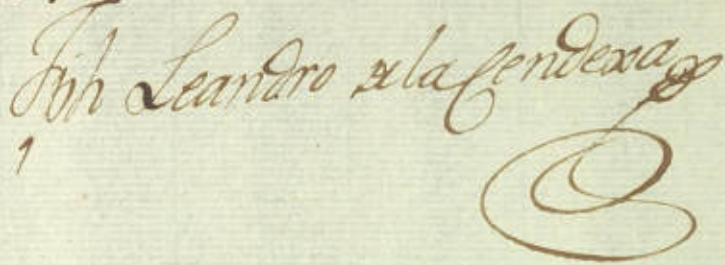 Jph Leandro dela Cendexa